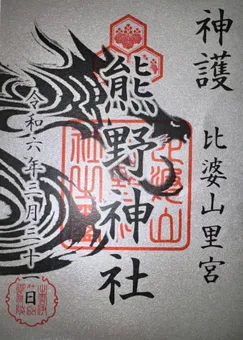 神護
比婆山里宮
熊野神社
令和六年三月三十一日